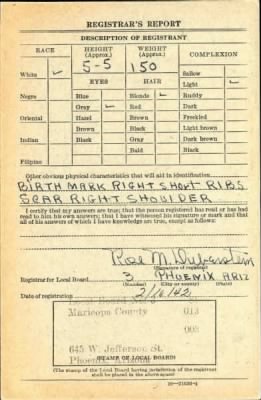 REGISTRAR'S REPORT
DESCRIPTION OF REGISTRANT
RACE HEIGHT (Approx.) WEIGHT (Approx.) COMPLEXION
5-5 150
White ✓ Sallow
EYES HAIR Light ✓
Negro Blue Blonde ✓ Ruddy
Gray ✓ Red Dark
Oriental Hazel Brown Freckled
Brown Black Light brown
Indian Black Gray Dark brown
Bald Black
Filipino
Other obvious physical characteristics that will aid in identification
BIRTH MARK RIGHT SHORT RIBS
SCAR RIGHT SHOULDER
I certify that my answers are true; that the person registered has read or has had
read to him his own answers; that I have witnessed his signature or mark and that
all of his answers of which I have knowledge are true, except as follows:
Rose M.
(Signature of registrar)
Registrar for Local Board 3 PHOENIX ARIZ
(Number) (City) (State)
Date of registration 2/16/42
Maricopa County 013
003
645 W. Jefferson St.
Phoenix, Arizona
(STAMP OF LOCAL BOARD)
(The stamp of the Local Board having jurisdiction of the registrant
shall be placed in the above space.)